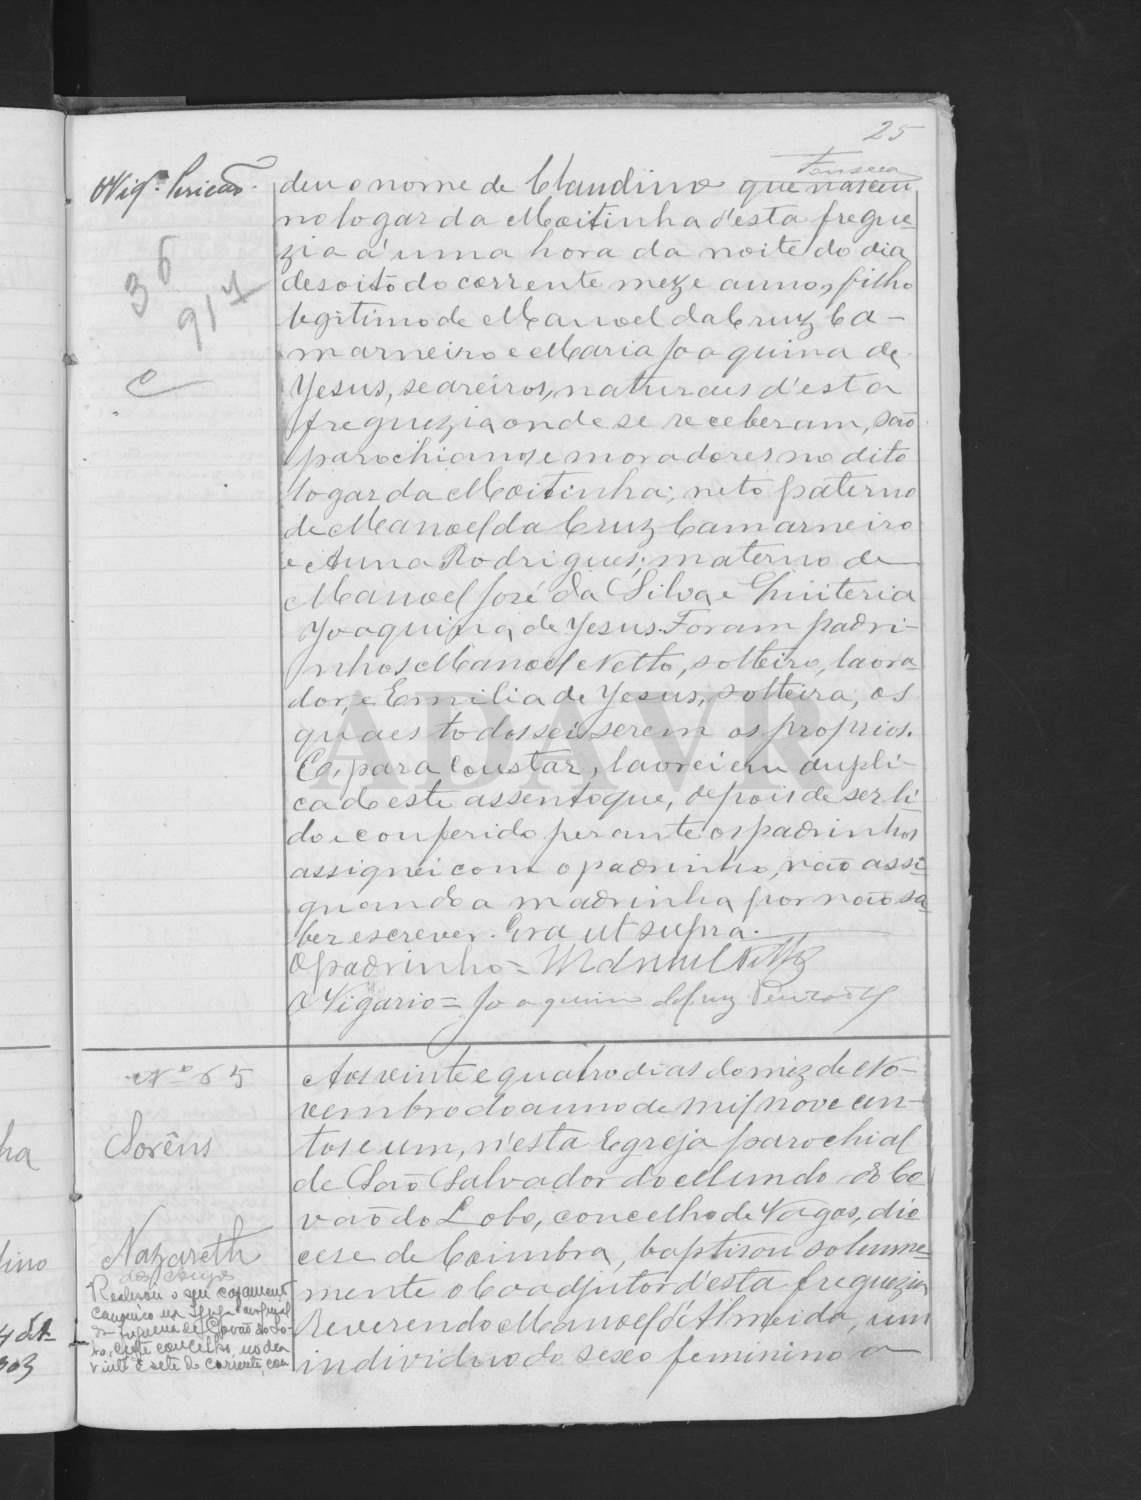 25
Fonseca
O Vig.º
36
917
C
deu o nome de Claudino que nasceu
no logar da Moitinha d'esta fregue-
zia á uma hora da noite do dia
desoito do corrente mez e anno, filho
legitimo de Manoel da Cruz Ca-
marneiro e Maria Joaquina de
Jesus, seareiros, naturaes d'esta
freguezia onde se receberam, são
parochianos e moradores no dito
logar da Moitinha; neto paterno
de Manoel da Cruz Camarneiro
e Anna Rodrigues; materno de
Manoel José da Silva e Quiteria
Joaquina de Jesus. Foram padri-
nhos Manoel Netto, solteiro, lavra-
dor, e Emilia de Jesus, solteira, os
quaes todos sei serem os proprios.
E, para constar, lavrei em dupli-
cado este assento que, depois de ser li-
do e conferido perante os padrinhos
assignei com o padrinho, não assi-
gnando a madrinha por não sa-
ber escrever. Era ut supra.
O padrinho = Manuel Netto
O Vigario = Joaquim da Cruz
ADAVR
Nº 65
Sorêns
Nazareth
Realisou o seu casamento
canonico na Igreja
da freguesia de Covão do Lo-
bo, deste concelho, no dia
vinte e sete do corrente, com
Aos vinte e quatro dias do mez de No-
vembro do anno de mil nove cen-
tos e um, n'esta Egreja parochial
de São Salvador do Mundo do Co-
vão do Lobo, concelho de Vagos, dio-
cese de Coimbra, baptisou solemne-
mente o Coadjutor d'esta freguezia
Reverendo Manoel d'Almeida, um
individuo do sexo feminino a